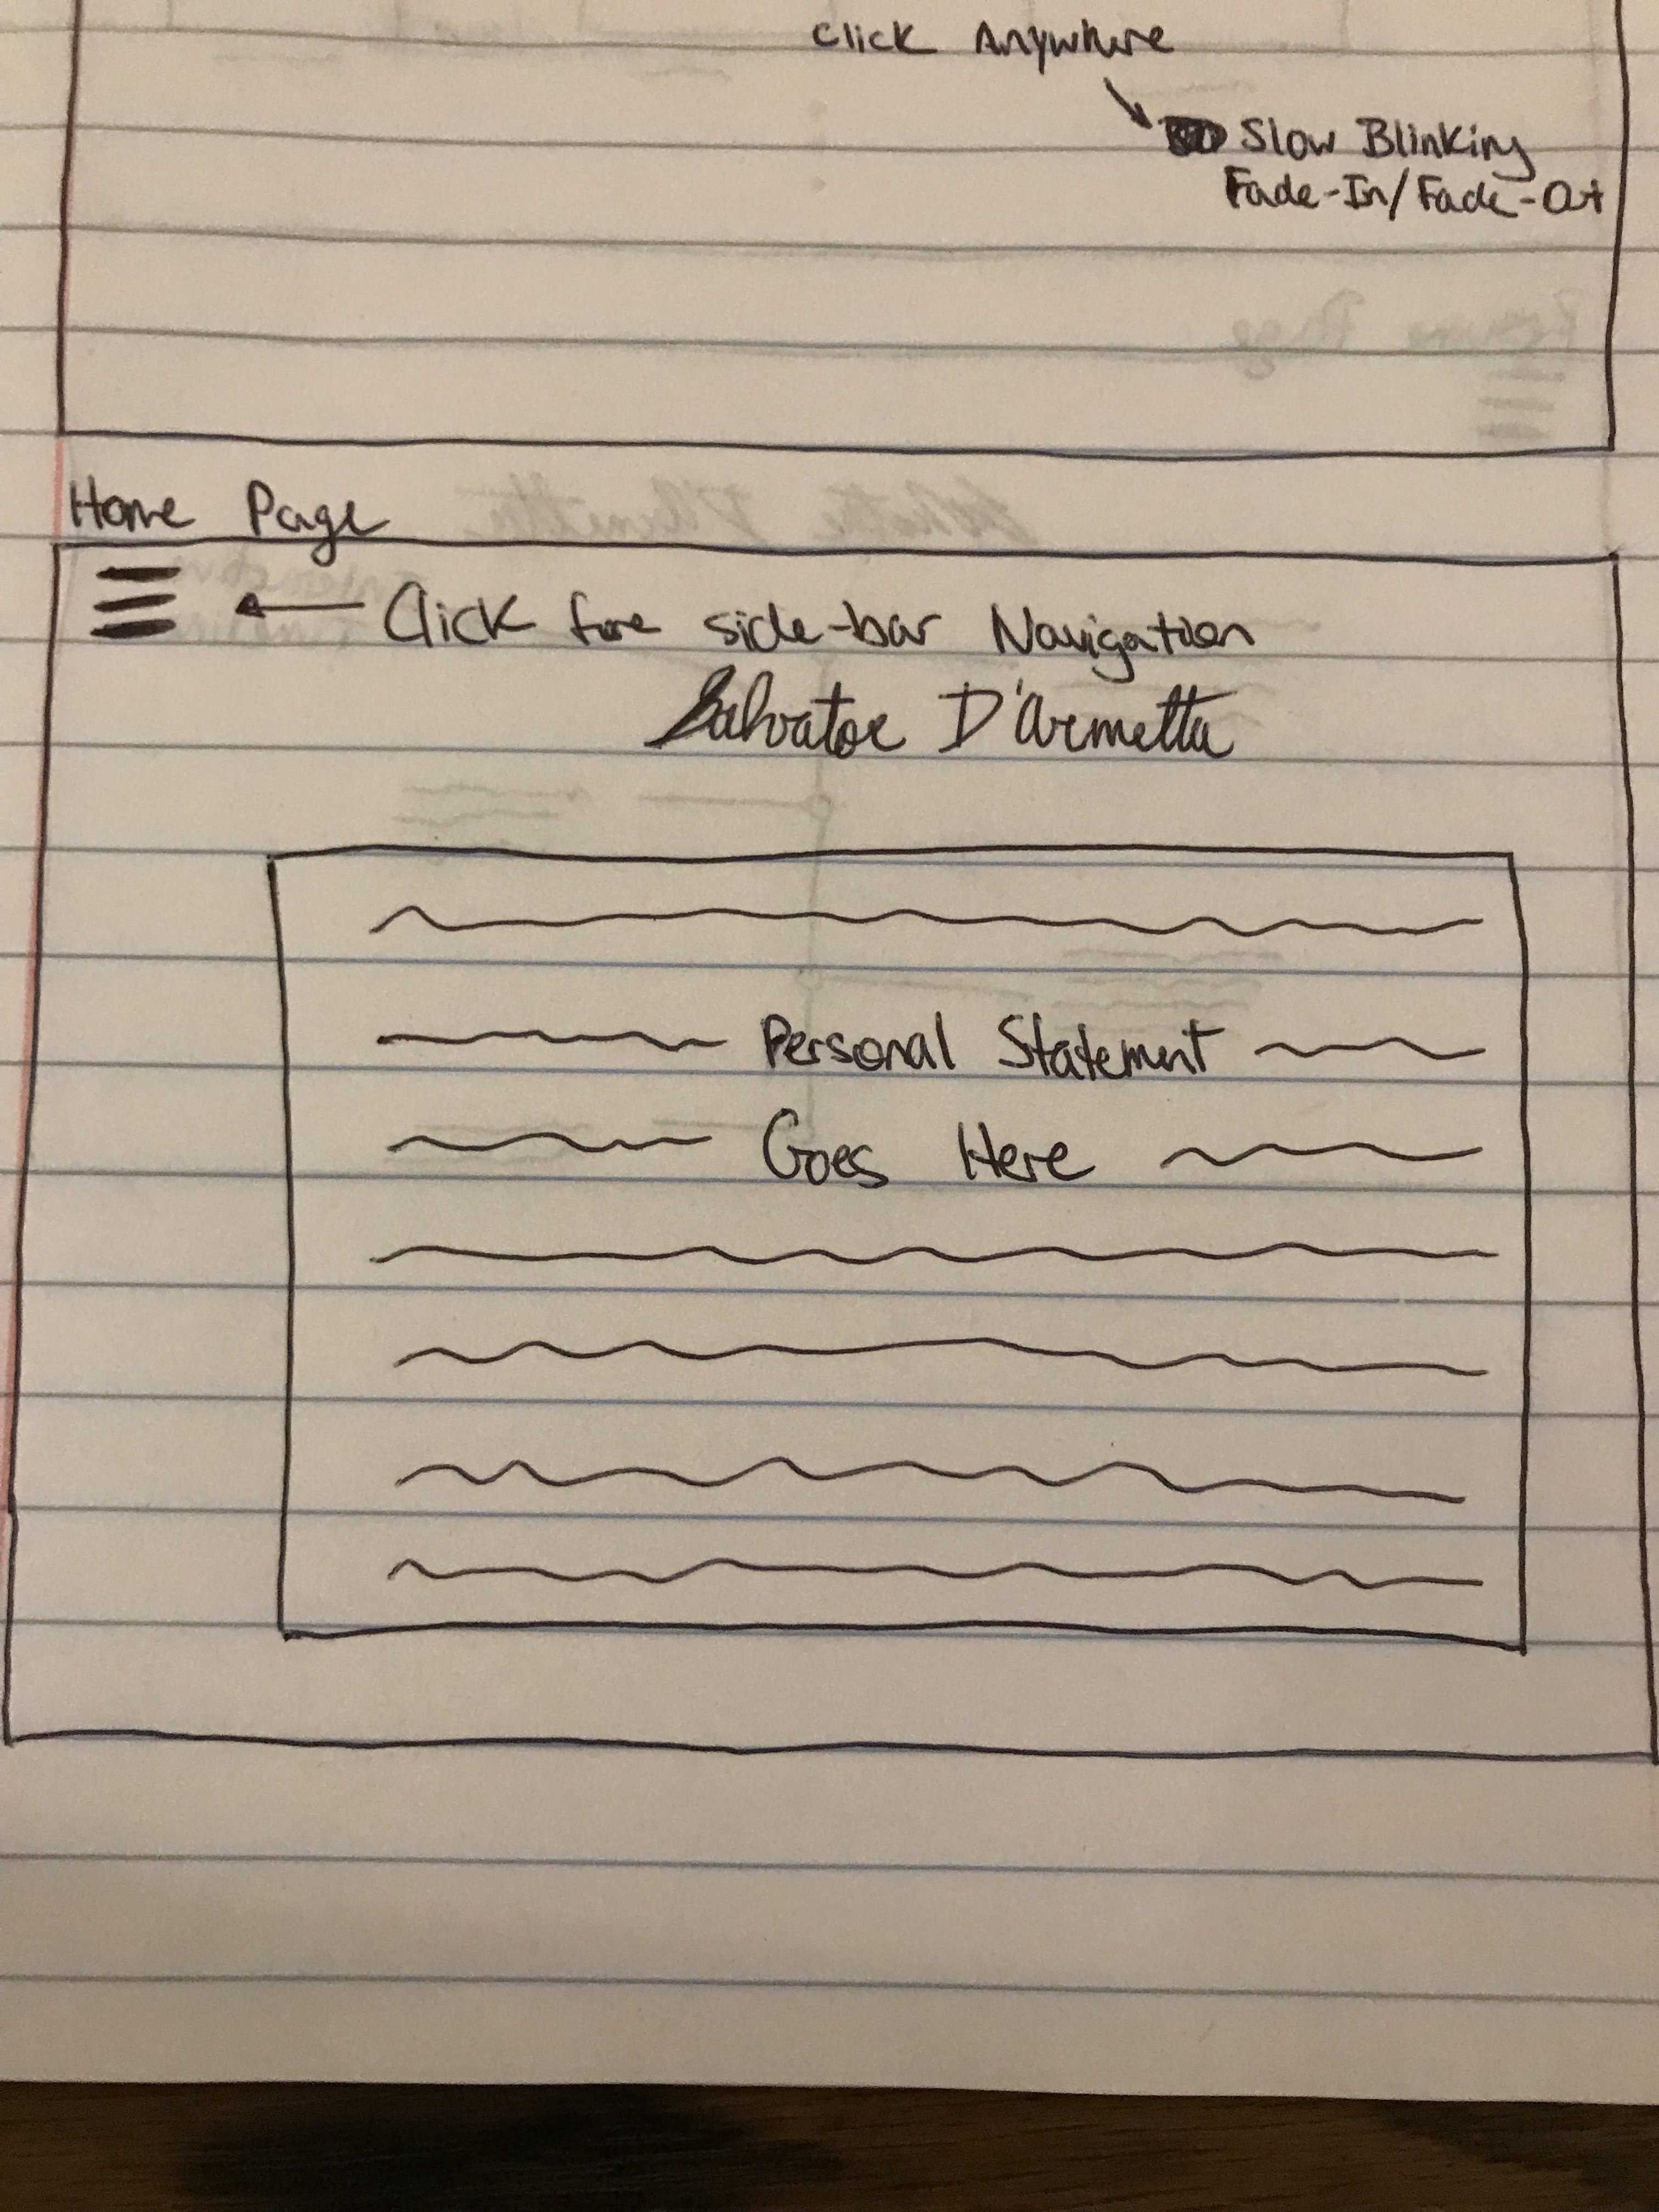 Click Anywhere
Slow Blinking
Fade-In/Fade-Out
Resume Page
Home Page
Click for side-bar Navigation
Salvatore D'Armetta
Personal Statement
Goes Here